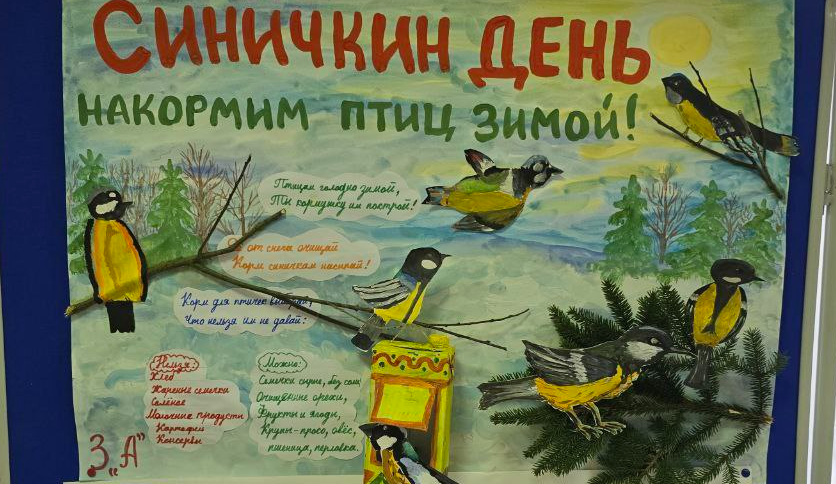 СИНИЧКИН ДЕНЬ
НАКОРМИМ ПТИЦ ЗИМОЙ!
Птицам голодно зимой,
Ты кормушку им построй!
от снега очищай
Корм синичкам насыпай!
Корм для птичек выбирай,
Что нельзя им не давай:
Нельзя:
Хлеб
Жаренные семечки
Солёное
Молочные продукты
Картофель
Консервы
Можно:
Семечки сырые, без соли
Очищенные орехи,
Фрукты и ягоды,
Крупы-просо, овёс,
пшеница, перловка.
3 „А"